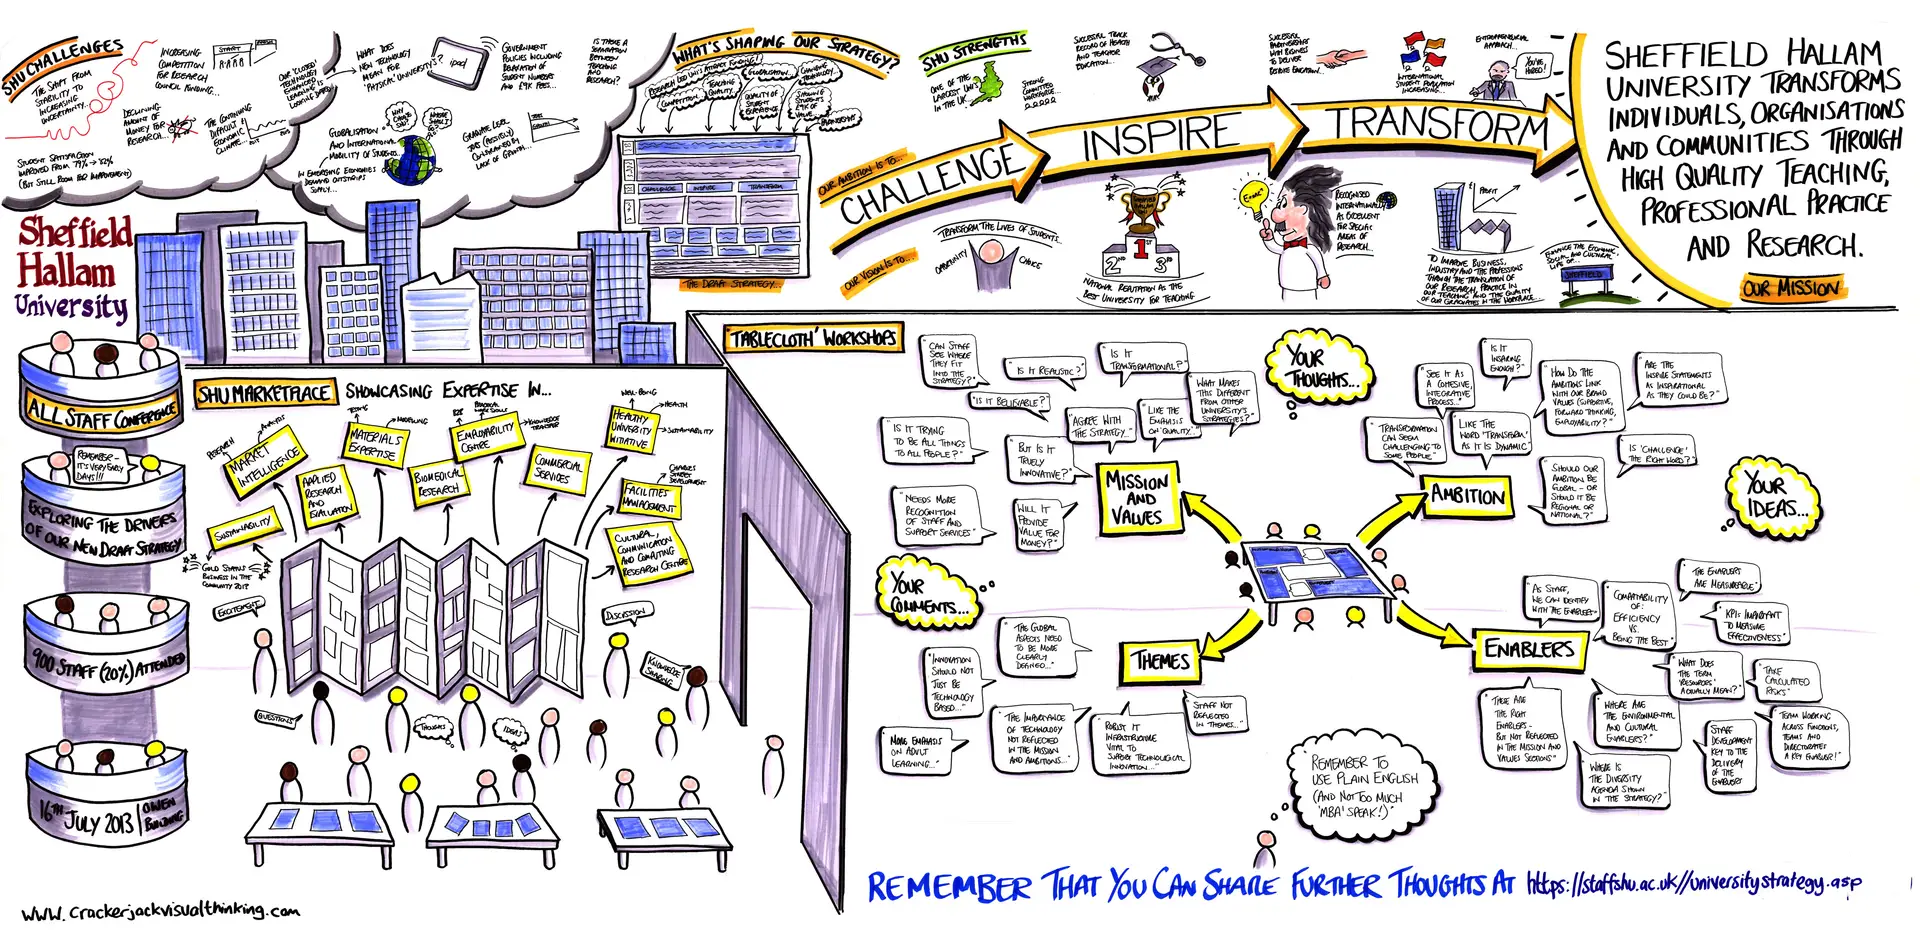 SHU CHALLENGES
THE SHIFT FROM
STABILITY TO
INCREASING
UNCERTAINTY...
INCREASING
COMPETITION
FOR RESEARCH
COUNCIL FUNDING...
START
DECLINING
AMOUNT OF
MONEY FOR
RESEARCH...
THE CONTINUING
DIFFICULT
ECONOMIC
CLIMATE...
STUDENT SATISFACTION
IMPROVED FROM 79% → 82%
(BUT STILL ROOM FOR IMPROVEMENT)
WHAT DOES
NEW TECHNOLOGY
MEAN FOR
'PHYSICAL' UNIVERSITY'S?
ipad
GOVERNMENT
POLICIES INCLUDING
RELAXATION OF
STUDENT NUMBERS
AND £9K FEES...
IS THERE A
SEPARATION
BETWEEN
TEACHING
AND
RESEARCH?
GLOBALISATION
AND INTERNATIONAL
MOBILITY OF STUDENTS...
IN EMERGING ECONOMIES
DEMAND OUTSTRIPS
SUPPLY...
GRADUATE LEVEL
LACK OF GROWTH...
WHAT'S SHAPING OUR STRATEGY?
COMPETITION
TEACHING
QUALITY
GLOBALISATION
CHANGING
TECHNOLOGY
QUALITY OF
STUDENT
EXPERIENCE
SHOWING
STUDENTS
£9K OF
VALUE
PARTNERSHIPS
CHALLENGE
INSPIRE
TRANSFORM
THE DRAFT STRATEGY...
SHU STRENGTHS
ONE OF THE
LARGEST UNI'S
IN THE UK...
STRONG
COMMITTED
WORKFORCE...
SUCCESSFUL TRACK
RECORD OF HEALTH
AND TEACHER
EDUCATION...
SUCCESSFUL
PARTNERSHIPS
WITH BUSINESS
TO DELIVER
BESPOKE EDUCATION...
INTERNATIONAL
STUDENT POPULATION
INCREASING...
ENTREPRENEURIAL
APPROACH...
'YOU'RE
HIRED!'
OUR AMBITION IS TO...
CHALLENGE
INSPIRE
TRANSFORM
OUR VISION IS TO...
TRANSFORM THE LIVES OF STUDENTS...
OPPORTUNITY
CHOICE
SHEFFIELD
HALLAM
UNI
1ST
2ND
3RD
NATIONAL REPUTATION AS THE
BEST UNIVERSITY FOR TEACHING
E=MC²
RECOGNISED
INTERNATIONALLY
AS EXCELLENT
FOR SPECIFIC
AREAS OF
RESEARCH...
£
PROFIT
TO IMPROVE BUSINESS,
INDUSTRY AND THE PROFESSIONS
THROUGH THE TRANSLATION OF
OUR RESEARCH, PRACTICE IN
OUR TEACHING AND THE QUALITY
OF OUR GRADUATES IN THE WORKPLACE...
ENHANCE THE ECONOMIC,
SOCIAL AND CULTURAL
LIFE OF...
SHEFFIELD
SHEFFIELD HALLAM
UNIVERSITY TRANSFORMS
INDIVIDUALS, ORGANISATIONS
AND COMMUNITIES THROUGH
HIGH QUALITY TEACHING,
PROFESSIONAL PRACTICE
AND RESEARCH.
OUR MISSION
Sheffield
Hallam
University
ALL STAFF CONFERENCE
REMEMBER -
IT'S VERY EARLY
DAYS!!!
EXPLORING THE DRIVERS
OF OUR NEW DRAFT STRATEGY
900 STAFF (20%) ATTENDED
16TH JULY 2013
OWEN
BUILDING
SHU MARKETPLACE SHOWCASING EXPERTISE IN...
RESEARCH
ANALYSIS
MARKET
INTELLIGENCE
SUSTAINABILITY
GOLD STATUS
BUSINESS IN THE
COMMUNITY 2013
APPLIED
RESEARCH
AND
EVALUATION
TESTING
MODELLING
MATERIALS
EXPERTISE
BIOMEDICAL
RESEARCH
B2B
KNOWLEDGE
TRANSFER
EMPLOYABILITY
CENTRE
COMMERCIAL
SERVICES
WELL-BEING
HEALTH
SUSTAINABILITY
HEALTHY
UNIVERSITY
INITIATIVE
FACILITIES
MANAGEMENT
CULTURAL,
COMMUNICATION
AND COMPUTING
RESEARCH CENTRE
EXCITEMENT
DISCUSSION
KNOWLEDGE
SHARING
QUESTIONS
THOUGHTS
IDEAS
'TABLECLOTH' WORKSHOPS
"CAN STAFF
SEE WHERE
THEY FIT
INTO THE
STRATEGY?"
"IS IT REALISTIC?"
"IS IT
TRANSFORMATIONAL?"
"IS IT BELIEVABLE?"
"AGREE WITH
THE STRATEGY..."
"LIKE THE
EMPHASIS
ON 'QUALITY'"
"WHAT MAKES
THIS DIFFERENT
FROM OTHER
UNIVERSITY'S
STRATEGIES?"
"IS IT TRYING
TO BE ALL THINGS
TO ALL PEOPLE?"
"BUT IS IT
TRUELY
INNOVATIVE?"
"NEEDS MORE
RECOGNITION
OF STAFF AND
SUPPORT SERVICES"
"WILL IT
PROVIDE
VALUE FOR
MONEY?"
MISSION
AND
VALUES
YOUR
THOUGHTS...
"SEE IT AS
A COHESIVE,
INTEGRATIVE
PROCESS..."
"IS IT
INSPIRING
ENOUGH?"
"HOW DO THE
AMBITIONS LINK
WITH OUR BRAND
VALUES (SUPPORTIVE,
FORWARD THINKING,
EMPLOYABILITY?"
"ARE THE
INSPIRE STATEMENTS
AS INSPIRATIONAL
AS THEY COULD BE?"
"TRANSFORMATION
CAN SEEM
CHALLENGING TO
SOME PEOPLE"
"LIKE THE
WORD 'TRANSFORM'
AS IT IS DYNAMIC"
"SHOULD OUR
AMBITION BE
GLOBAL - OR
SHOULD IT BE
REGIONAL OR
NATIONAL?"
"IS 'CHALLENGE'
THE RIGHT WORD?"
AMBITION
YOUR
IDEAS...
YOUR
COMMENTS...
"THE GLOBAL
ASPECTS NEED
TO BE MORE
CLEARLY
DEFINED..."
"INNOVATION
SHOULD NOT
JUST BE
TECHNOLOGY
BASED..."
"MORE EMPHASIS
ON ADULT
LEARNING..."
"THE IMPORTANCE
OF TECHNOLOGY
NOT REFLECTED
IN THE MISSION
AND AMBITIONS..."
"ROBUST IT
INFRASTRUCTURE
VITAL TO
SUPPORT TECHNOLOGICAL
INNOVATION..."
"STAFF NOT
REFLECTED
IN THEMES..."
THEMES
ENABLERS
"AS STAFF,
WE CAN IDENTIFY
WITH THE ENABLERS"
"COMPATABILITY
OF:
EFFICIENCY
VS.
BEING THE BEST"
"THE ENABLERS
ARE MEASURABLE"
"KPI'S IMPORTANT
TO MEASURE
EFFECTIVENESS"
"WHAT DOES
THE TERM
'RESOURCES'
ACTUALLY MEAN?"
"TAKE
CALCULATED
RISKS"
"THESE ARE
THE RIGHT
ENABLERS -
BUT NOT REFLECTED
IN THE MISSION AND
VALUES SECTIONS"
"WHERE ARE
THE ENVIRONMENTAL
AND CULTURAL
ENABLERS?"
"WHERE IS
THE DIVERSITY
AGENDA SHOWN
IN THE STRATEGY?"
"STAFF
DEVELOPMENT
KEY TO THE
DELIVERY
OF THE
ENABLERS"
"TEAM WORKING
ACROSS FUNCTIONS,
TEAMS AND
DIRECTORATES
A KEY ENABLER!"
"REMEMBER TO
USE PLAIN ENGLISH
(AND NOT TOO MUCH
'MBA' SPEAK!)"
REMEMBER THAT YOU CAN SHARE FURTHER THOUGHTS AT https://staffshu.ac.uk//universitystrategy.asp
www.crackerjackvisualthinking.com